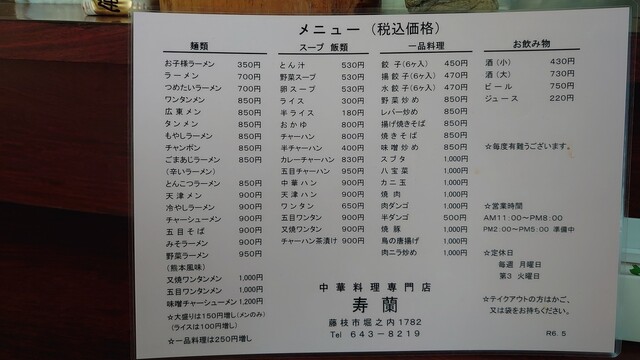 メニュー (税込価格)
麺類
お子様ラーメン 350円
ラーメン 700円
つめたいラーメン 700円
ワンタンメン 850円
広東メン 850円
タンメン 850円
もやしラーメン 850円
チャンポン 850円
ごまあじラーメン 850円
(辛いラーメン)
とんこつラーメン 850円
天津メン 900円
冷やしラーメン 900円
チャーシューメン 900円
五目そば 900円
みそラーメン 900円
野菜ラーメン 950円
(熊本風味)
又焼ワンタンメン 1,000円
五目ワンタンメン 1,000円
味噌チャーシューメン 1,200円
☆大盛りは150円増し(メンのみ)
(ライスは100円増し)
☆一品料理は250円増し
スープ 飯類
とん汁 530円
野菜スープ 530円
卵スープ 530円
ライス 300円
半ライス 180円
おかゆ 800円
チャーハン 800円
半チャーハン 400円
カレーチャーハン 830円
五目チャーハン 950円
中華ハン 900円
天津ハン 900円
ワンタン 650円
五目ワンタン 900円
又焼ワンタン 900円
チャーハン茶漬け 900円
一品料理
餃子(6ヶ入) 450円
揚餃子(6ヶ入) 470円
水餃子(6ヶ入) 470円
野菜炒め 850円
レバー炒め 850円
揚げ焼きそば 850円
焼きそば 850円
味噌炒め 850円
スブタ 1,000円
八宝菜 1,000円
カニ玉 1,000円
焼肉 1,000円
肉ダンゴ 1,000円
半ダンゴ 500円
焼豚 1,000円
鳥の唐揚げ 1,000円
肉ニラ炒め 1,000円
お飲み物
酒(小) 430円
酒(大) 730円
ビール 750円
ジュース 220円
☆毎度有難うございます。
☆営業時間
AM11:00~PM8:00
PM2:00~PM5:00 準備中
☆定休日
毎週 月曜日
第3 火曜日
☆テイクアウトの方はかご、
又は袋をお持ちください。
R6.5
中華料理専門店
寿蘭
藤枝市堀之内1782
Tel 643-8219